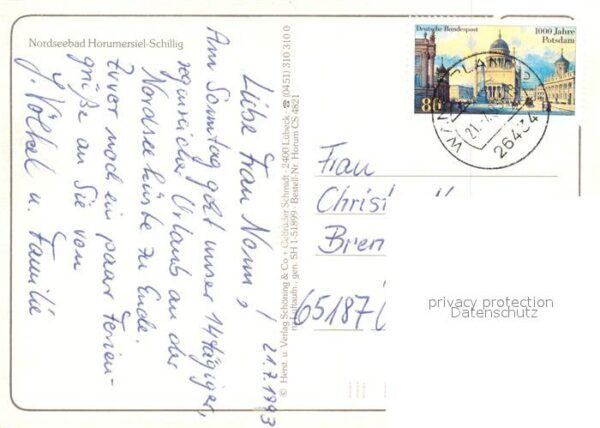 Nordseebad Horumersiel-Schillig
21.7.1993
Liebe Frau Nonn,
Am Sonntag geht unser 14tägiger,
regenreicher Urlaub an der
Nordseeküste zu Ende.
Zuvor noch ein paar Ferien-
grüße an Sie von
J. Völkel u. Familie
© Herst. u. Verlag Schöning & Co + Gebrüder Schmidt · 2400 Lübeck · ☎ (0451) 310 310 0
Luftaufn., gen. SH 1-51899 · Bestell-Nr. Horum CS 4821
Deutsche Bundespost
1000 Jahre
Potsdam
26434
Frau
Christ
Bren
65187
privacy protection
Datenschutz